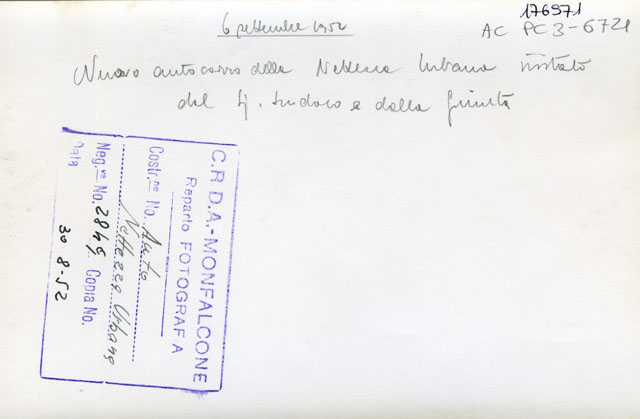 6 settembre 1952
176971
AC PC3-6721
Nuovo autocarro della Nettezza Urbana visitato
dal Sig. Sindaco e dalla Giunta
C.R.D.A.-MONFALCONE
Reparto FOTOGRAFA
Costr.ne No. Auto
Nettezza Urbana
Neg.vo No. 2845 Copia No.
Data 30 8-52